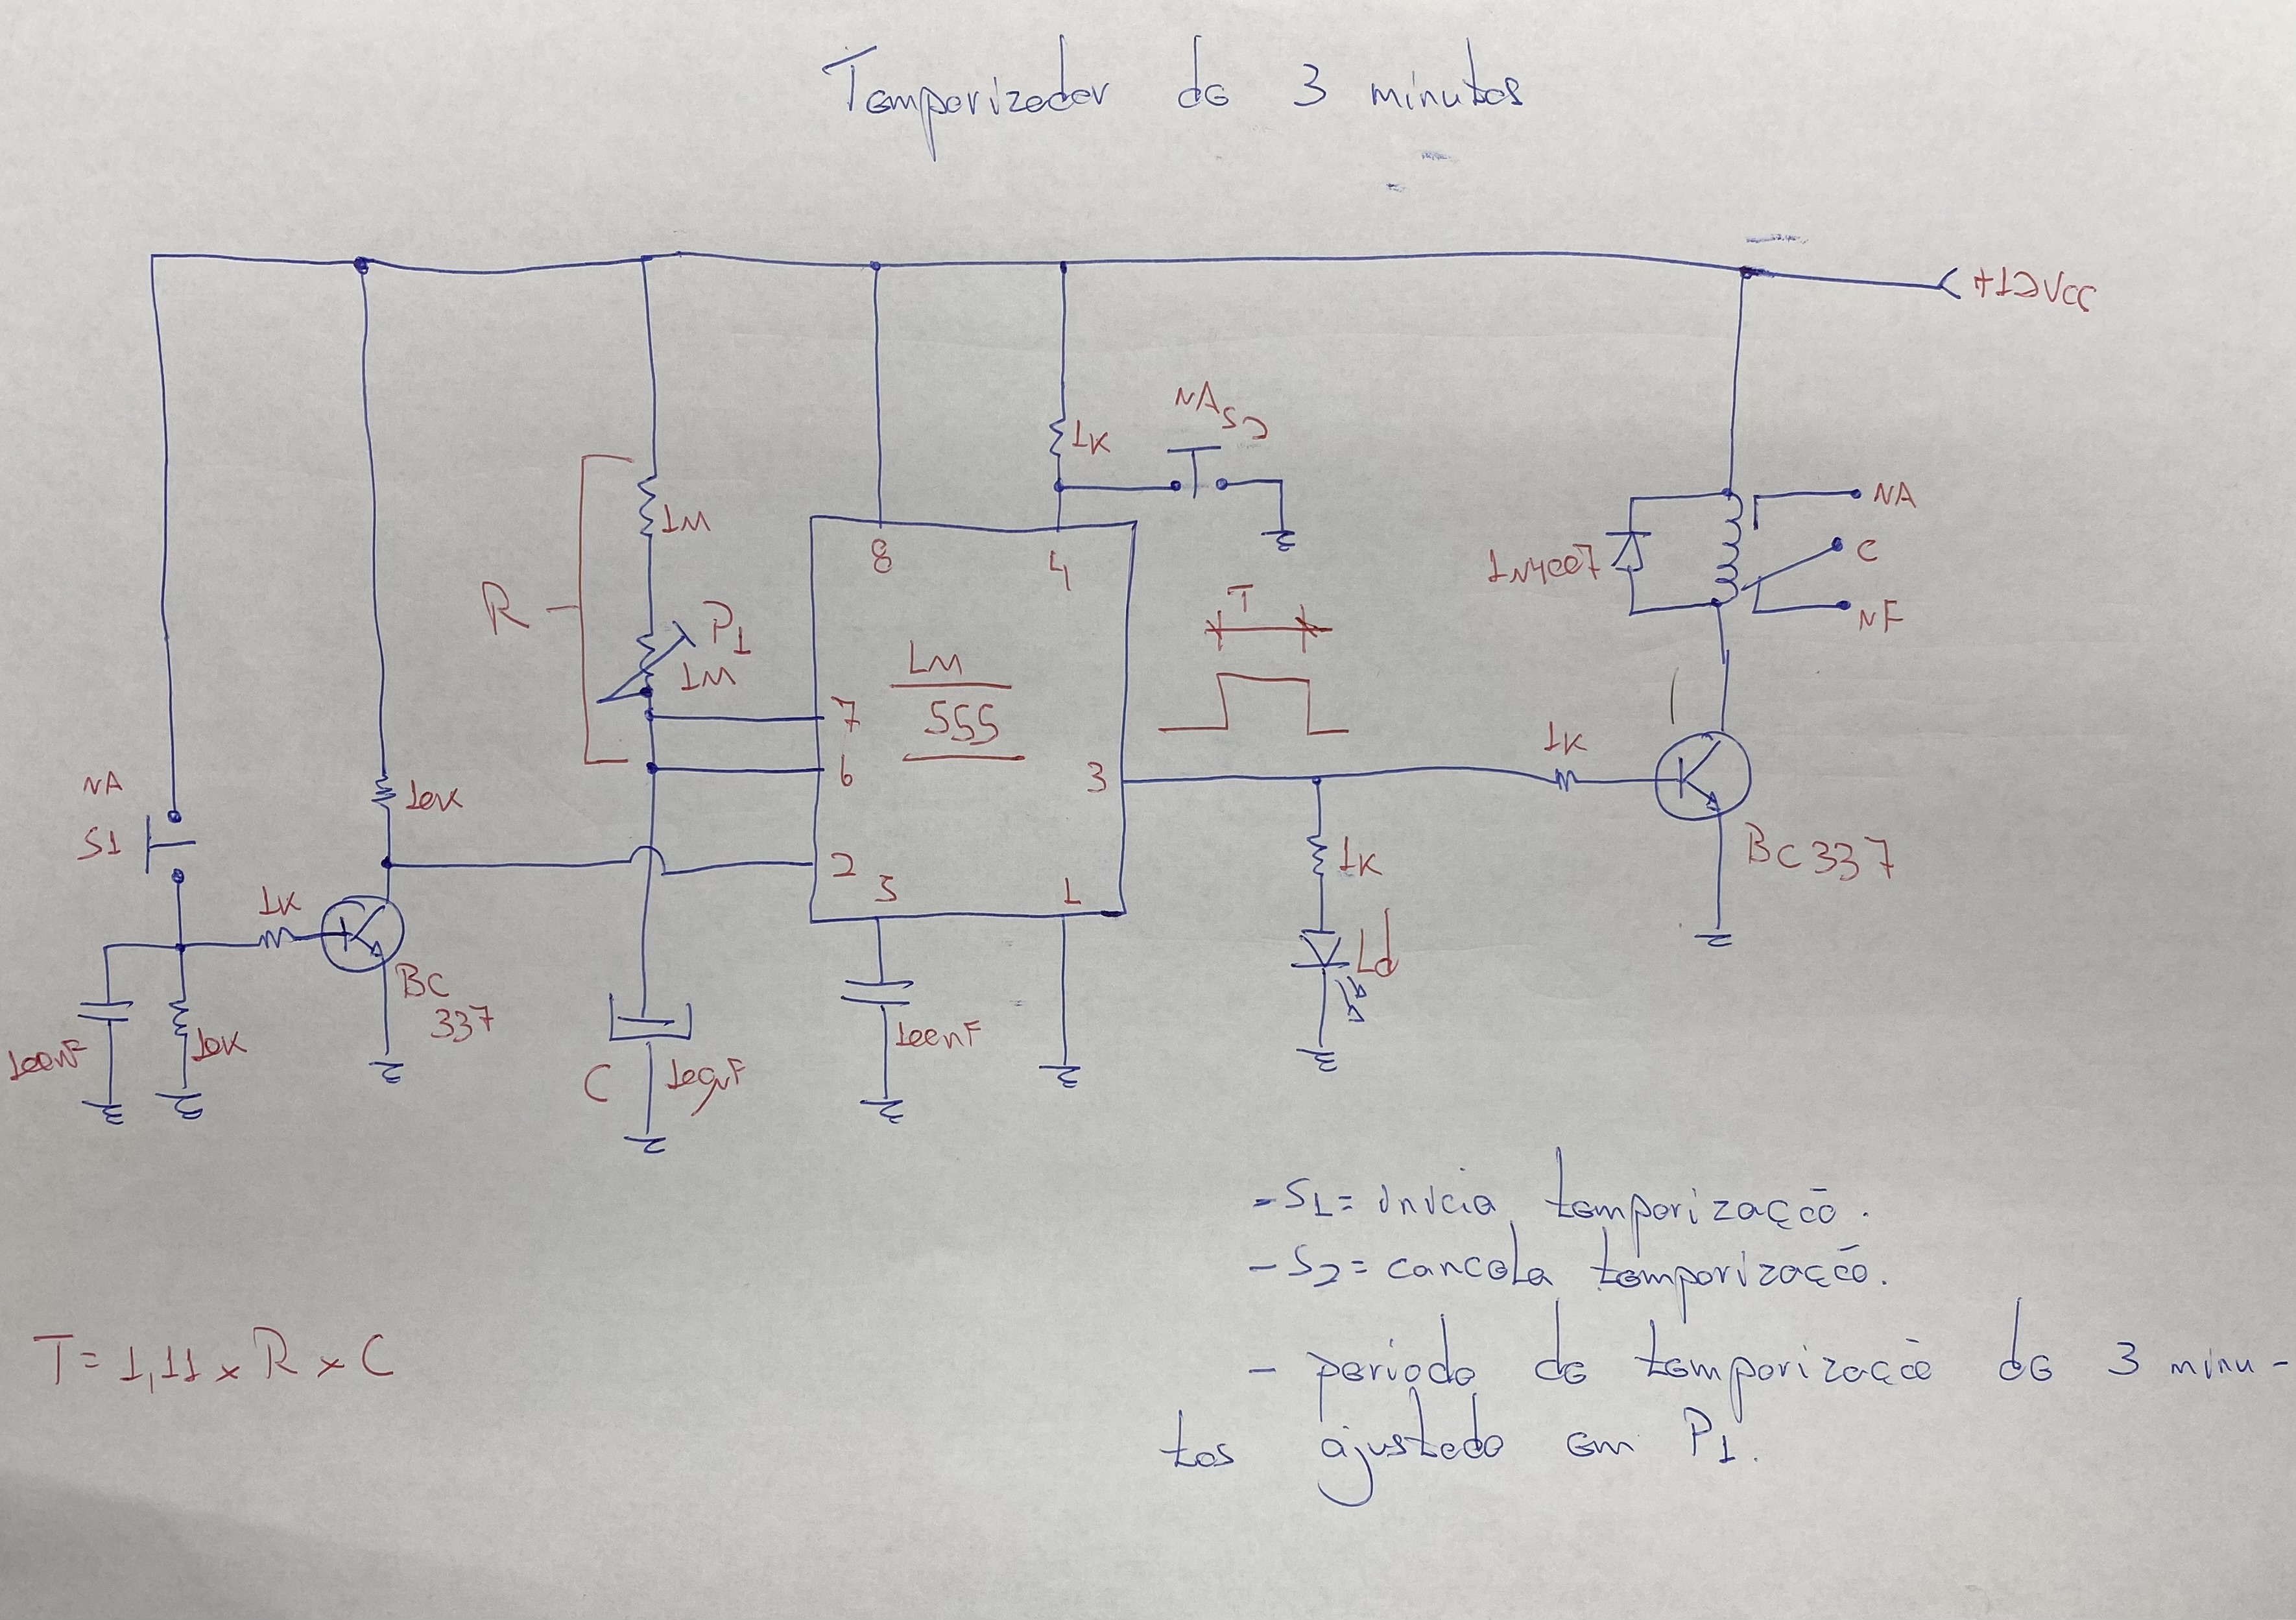 Temporizador de 3 minutos
+12Vcc
NA S2
1K
1M
R
P1
1M
8
4
LM
555
7
6
2
5
1
3
T
1N4007
NA
C
NF
1K
BC337
1K
Ld
NA
S1
10K
1K
BC
337
100nF
10K
C
100µF
100nF
- S1 = inicia temporização.
- S2 = cancela temporização.
T = 1,11 x R x C
- período de temporização de 3 minu-
tos ajustado em P1.